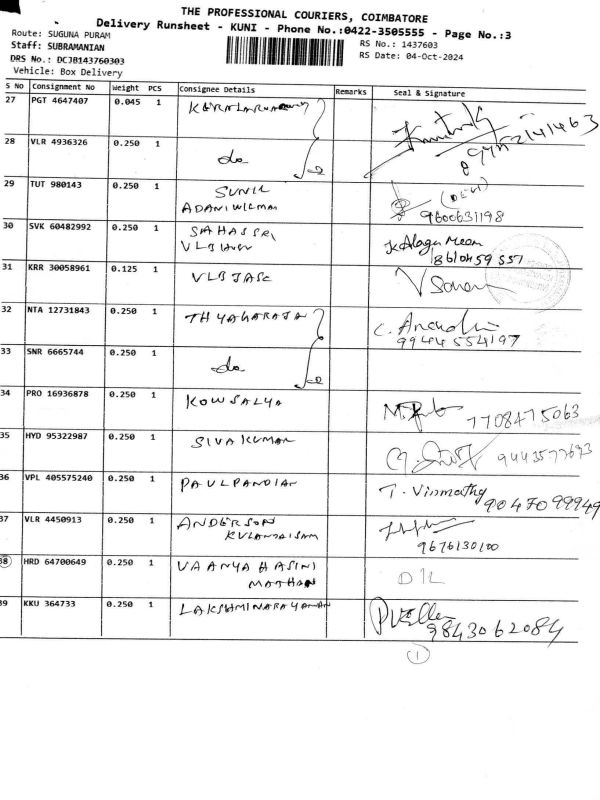 THE PROFESSIONAL COURIERS, COIMBATORE
Delivery Runsheet - KUNI - Phone No.:0422-3505555 - Page No.:3
Route: SUGUNA PURAM
Staff: SUBRAMANIAN
DRS No.: DCJB143760303
Vehicle: Box Delivery
RS No.: 1437603
RS Date: 04-Oct-2024
S No Consignment No Weight PCS Consignee Details Remarks Seal & Signature
27 PGT 4647407 0.045 1
28 VLR 4936326 0.250 1 do
29 TUT 980143 0.250 1 SUNIL
ADANI WILMAR (DEVI)
9600631198
30 SVK 60482992 0.250 1 SAHASSRI
VLB
31 KRR 30058961 0.125 1 VLB JASC
32 NTA 12731843 0.250 1 THYAGARAJA
9944554197
33 SNR 6665744 0.250 1 do
34 PRO 16936878 0.250 1 KOWSALYA 7708475063
35 HYD 95322987 0.250 1 SIVAKUMAR
36 VPL 405575240 0.250 1 PAULPANDIAN T. Vinmathy
9047099949
37 VLR 4450913 0.250 1 ANDERSON
KULANDAISAM
9676130100
38 HRD 64700649 0.250 1 VAANYA HASINI
MATHAN D1L
39 KKU 364733 0.250 1 LAKSHMINARAYANAN
9843062084
1